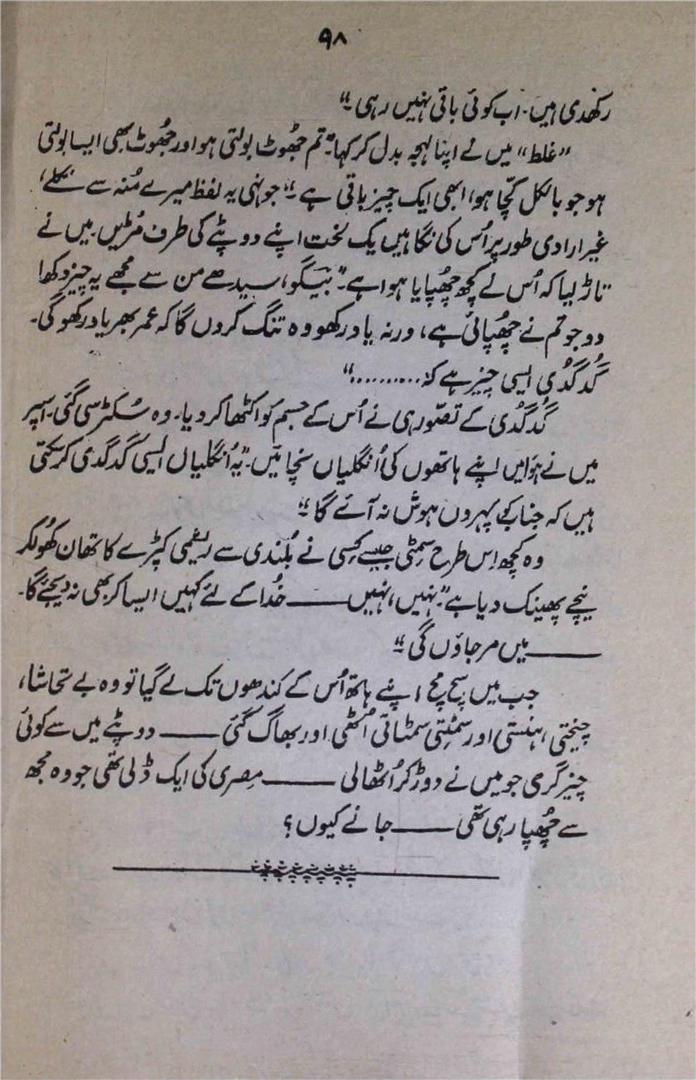 ۹۸
رکھدی ہیں۔ اب کوئی باقی نہیں رہی۔“
”غلط“ میں نے اپنا لہجہ بدل کر کہا۔ ”تم جھوٹ بولتی ہو اور جھوٹ بھی ایسا بولتی
ہو جو بالکل کچّا ہو، ابھی ایک چیز باقی ہے۔“ جونہی یہ لفظ میرے مُنہ سے نکلے،
غیر ارادی طور پر اُس کی نگاہیں یک لخت اپنے دوپٹے کی طرف مُڑیں۔ میں نے
تاڑ لیا کہ اُس نے کچھ چھُپایا ہوا ہے۔ ”بیگو، سیدھے من سے مجھے یہ چیز دکھا
دو جو تم نے چھُپائی ہے، ورنہ یاد رکھو وہ تنگ کروں گا کہ عمر بھر یاد رکھو گی۔
گُدگُدی ایسی چیز ہے کہ ..........“
گُدگُدی کے تصّور ہی نے اُس کے جسم کو اکٹھا کر دیا۔ وہ سُکڑ سی گئی۔ اسپر
میں نے ہوا میں اپنے ہاتھوں کی اُنگلیاں نچائیں۔ ”یہ اُنگلیاں ایسی گدگدی کر سکتی
ہیں کہ جناب کو پہروں ہوش نہ آئے گا۔“
وہ کچھ اِس طرح سمٹی جیسے کِسی نے بُلندی سے ریشمی کپڑے کا تھان کھُولکر
نیچے پھینک دیا ہے۔ ”نہیں، نہیں ــــــ خُدا کے لئے کہیں ایسا کر بھی نہ دیجئے گا۔
ــــــ میں مر جاؤں گی۔“
جب میں سچ مچ اپنے ہاتھ اُس کے کندھوں تک لے گیا تو وہ بے تحاشا،
چیختی، ہنستی اور سمٹتی سمٹاتی اُٹھی اور بھاگ گئی ــــــ دوپٹے میں سے کوئی
چیز گری جو میں نے دوڑ کر اُٹھا لی ــــــ مِصری کی ایک ڈلی تھی جو وہ مجھ
سے چھُپا رہی تھی ــــــ جانے کیوں؟